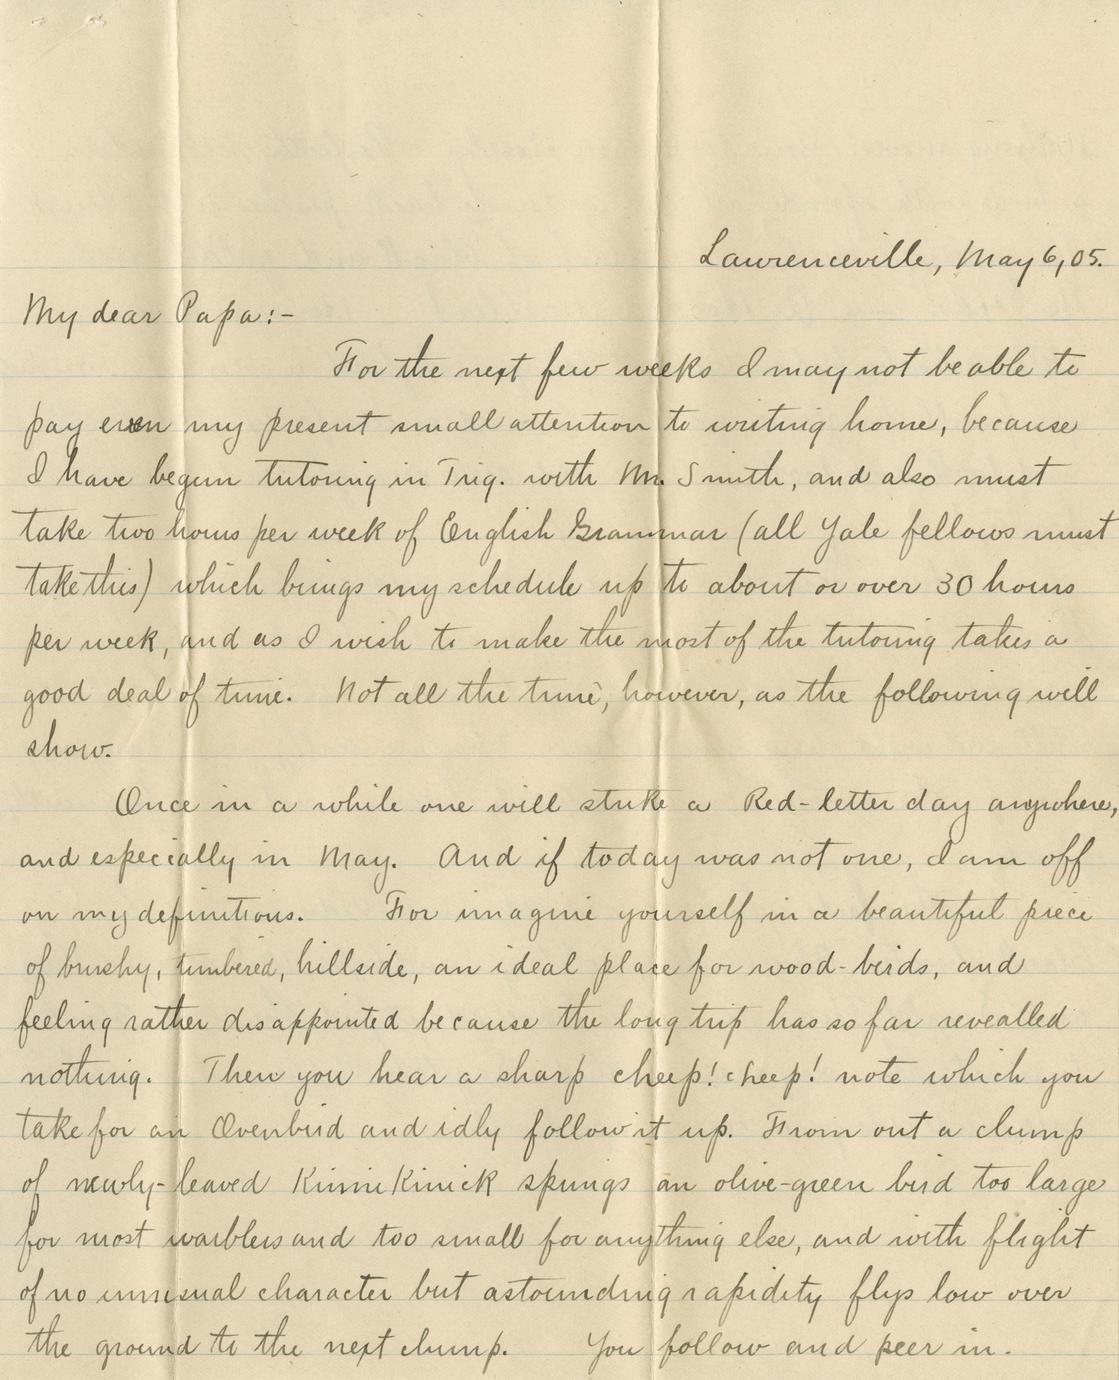 Lawrenceville, May 6, 05.
My dear Papa:-
For the next few weeks I may not be able to
pay even my present small attention to writing home, because
I have begun tutoring in Trig. with Mr. Smith, and also must
take two hours per week of English Grammar (all Yale fellows must
take this) which brings my schedule up to about or over 30 hours
per week, and as I wish to make the most of the tutoring takes a
good deal of time. Not all the time, however, as the following will
show.
Once in a while one will strike a Red-letter day anywhere,
and especially in May. And if today was not one, I am off
on my definitions. For imagine yourself in a beautiful piece
of brushy, timbered, hillside, an ideal place for wood-birds, and
feeling rather disappointed because the long trip has so far revealled
nothing. Then you hear a sharp cheep! cheep! note which you
take for an Ovenbird and idly follow it up. From out a clump
of newly-leaved KinniKinick springs an olive-green bird too large
for most warblers and too small for anything else, and with flight
of no unusual character but astounding rapidity flys low over
the ground to the next clump. You follow and peer in.